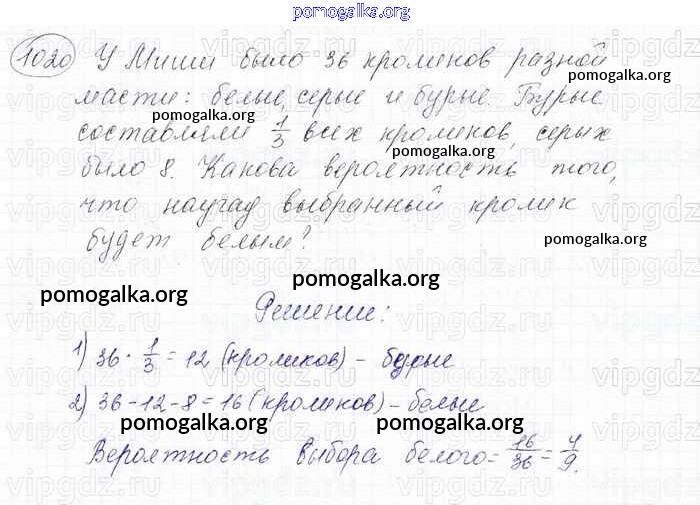 pomogalka.org
1020 У Миши было 36 кроликов разной
pomogalka.org
масти: белые, серые и бурые. Бурые
pomogalka.org
составляли 1/3 всех кроликов, серых
pomogalka.org
было 8. Какова вероятность того,
что наугад выбранный кролик
pomogalka.org
будет белым?
pomogalka.org
pomogalka.org
pomogalka.org
Решение:
1) 36 · 1/3 = 12 (кроликов) - бурые
2) 36-12-8=16 (кроликов) - белые
pomogalka.org
pomogalka.org
Вероятность выбора белого = 16/36 = 4/9.